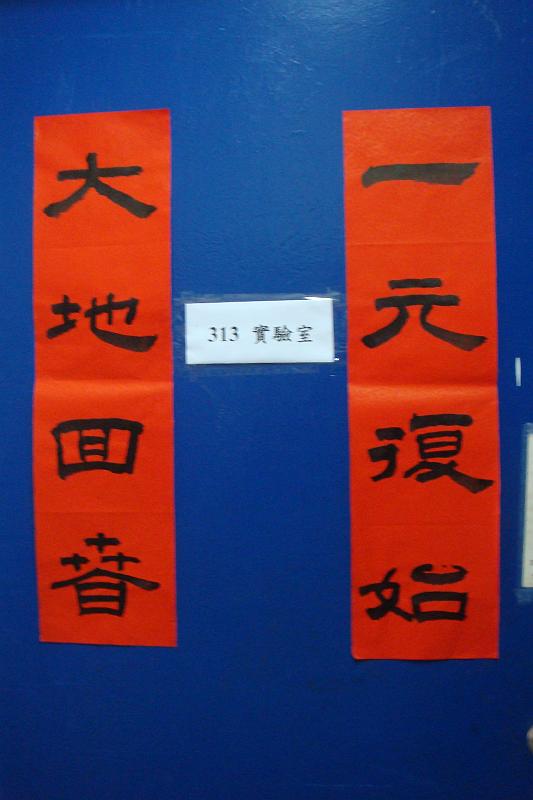 一元復始
313 實驗室
大地回春